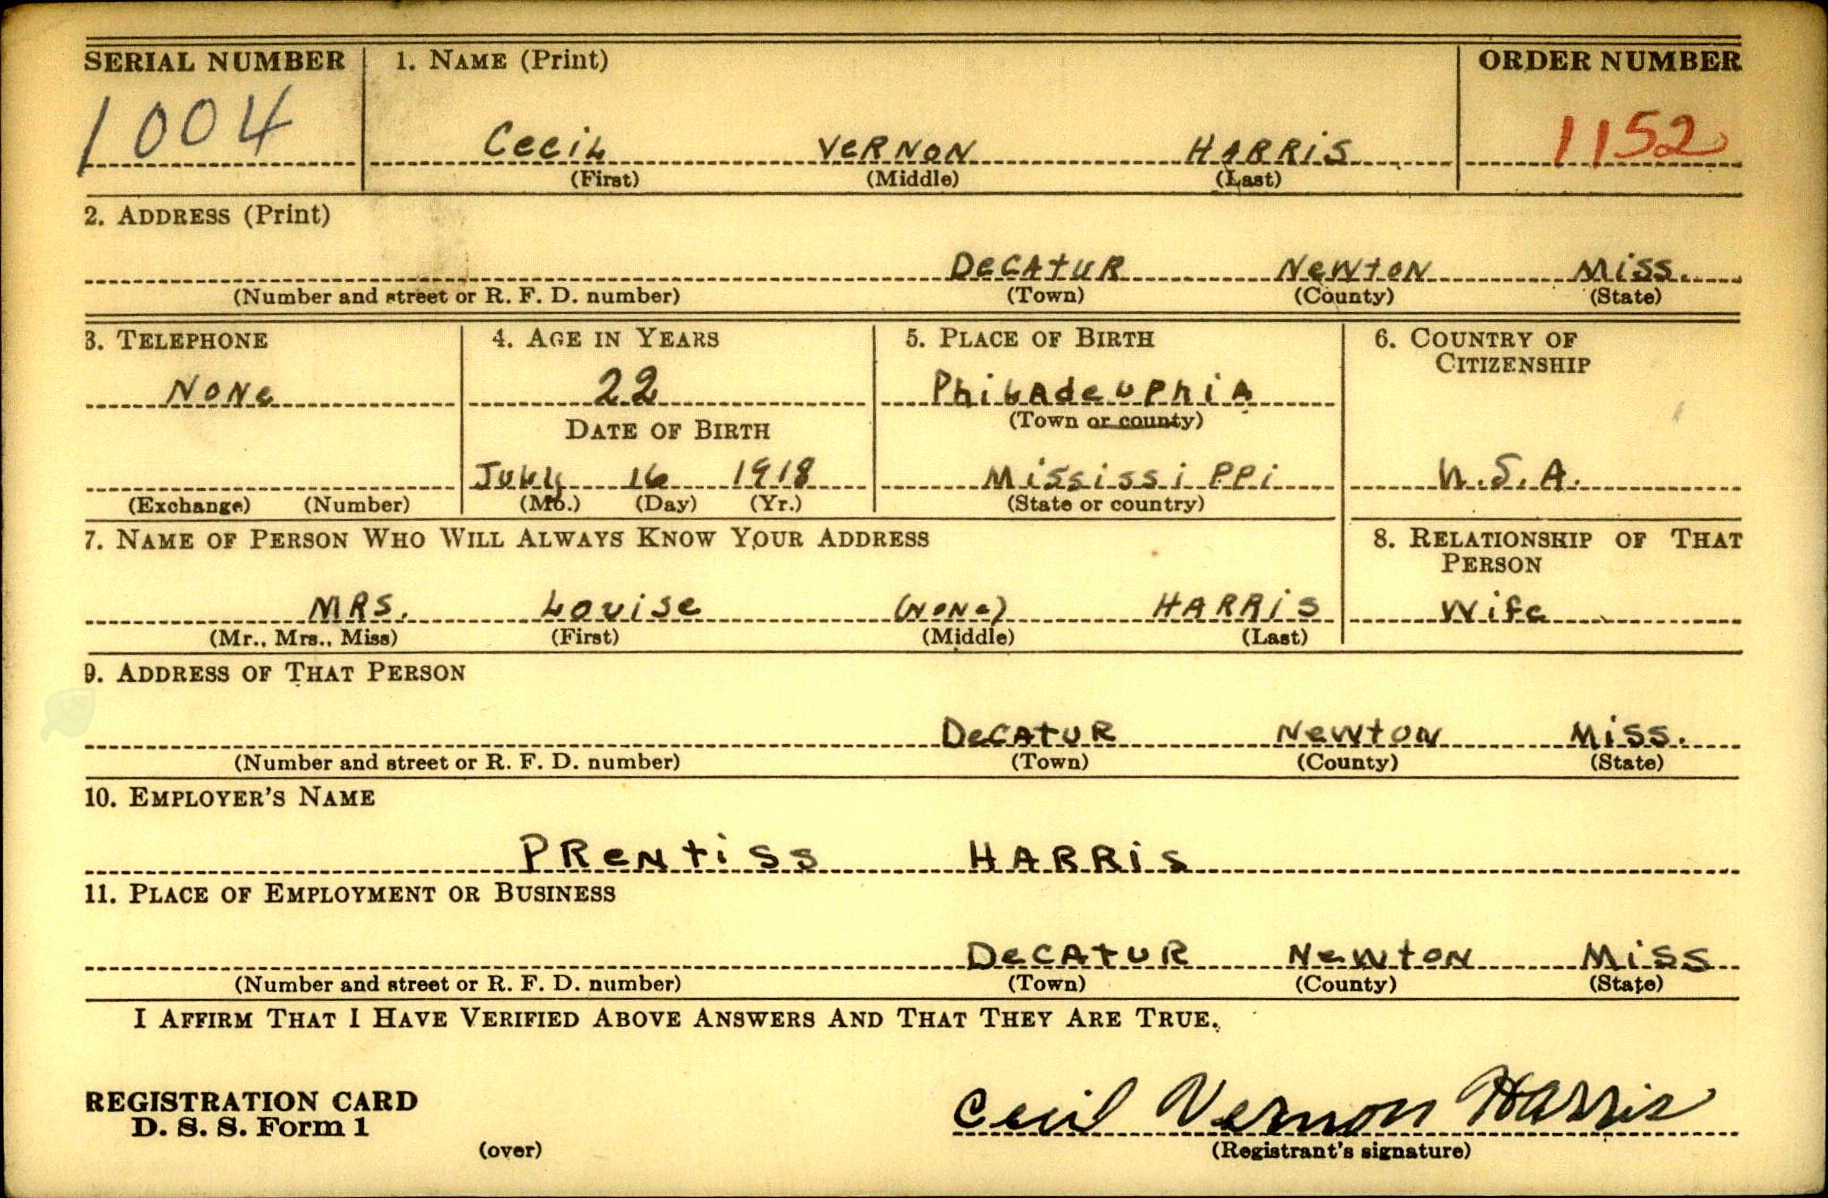 SERIAL NUMBER 1. NAME (Print) ORDER NUMBER
1004 CeciL VeRNON HARRiS 1152
(First) (Middle) (Last)
2. ADDRESS (Print)
DeCAtUR NewtoN Miss.
(Number and street or R. F. D. number) (Town) (County) (State)
3. TELEPHONE 4. AGE IN YEARS 5. PLACE OF BIRTH 6. COUNTRY OF CITIZENSHIP
NoNe 22 PhiLAdeLphiA
DATE OF BIRTH (Town or county)
JuLy 16 1918 Mississippi U.S.A.
(Exchange) (Number) (Mo.) (Day) (Yr.) (State or country)
7. NAME OF PERSON WHO WILL ALWAYS KNOW YOUR ADDRESS 8. RELATIONSHIP OF THAT PERSON
MRS. Louise (NoNe) HARRiS Wife
(Mr., Mrs., Miss) (First) (Middle) (Last)
9. ADDRESS OF THAT PERSON
DeCAtUR NewtoN Miss.
(Number and street or R. F. D. number) (Town) (County) (State)
10. EMPLOYER'S NAME
PReNtiss HARRiS
11. PLACE OF EMPLOYMENT OR BUSINESS
DeCAtUR NewtoN Miss
(Number and street or R. F. D. number) (Town) (County) (State)
I AFFIRM THAT I HAVE VERIFIED ABOVE ANSWERS AND THAT THEY ARE TRUE.
REGISTRATION CARD
D. S. S. Form 1 Cecil Vernon Harris
(over) (Registrant's signature)